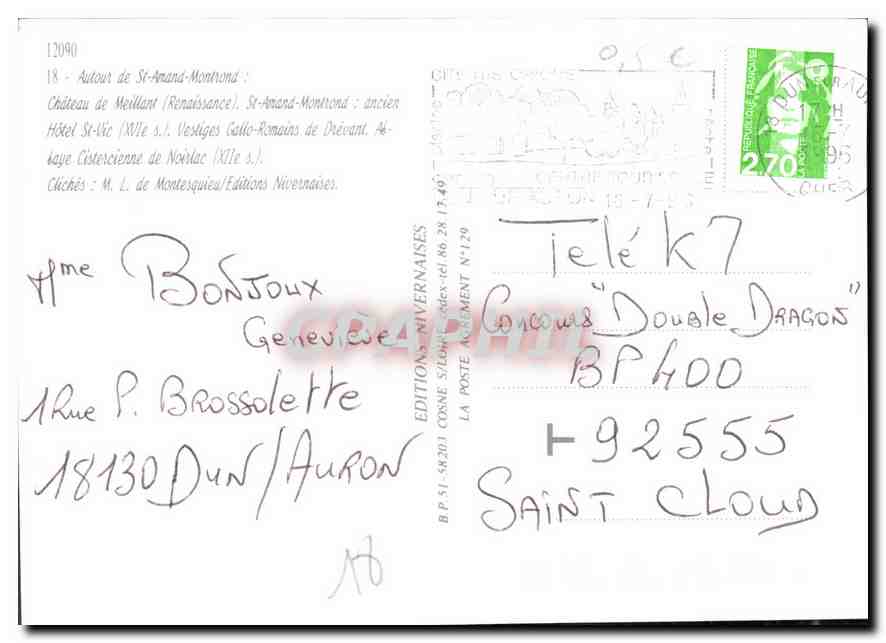 12090
18 - Autour de St-Amand-Montrond :
Château de Meillant (Renaissance). St-Amand-Montrond : ancien
Hôtel St-Vic (XVIe s.). Vestiges Gallo-Romains de Drévant. Ab-
baye Cistercienne de Noirlac (XIIe s.).
Clichés : M. L. de Montesquieu/Editions Nivernaises.
0,5 €
REPUBLIQUE FRANÇAISE
2,70
LA POSTE
95
CHER
18-7-95
EDITIONS NIVERNAISES
B.P. 51-58203 COSNE S/LOIRE cédex-tél. 86.28.13.49
LA POSTE AGREMENT N° 129
Mme BONJOUX
Geneviève
1 Rue P. BROSSOLETTE
18130 DUN/AURON
18
Télé K7
Concours "DOUBLE DRAGON"
BP 400
92555
SAINT CLOUD
CPAPHIL